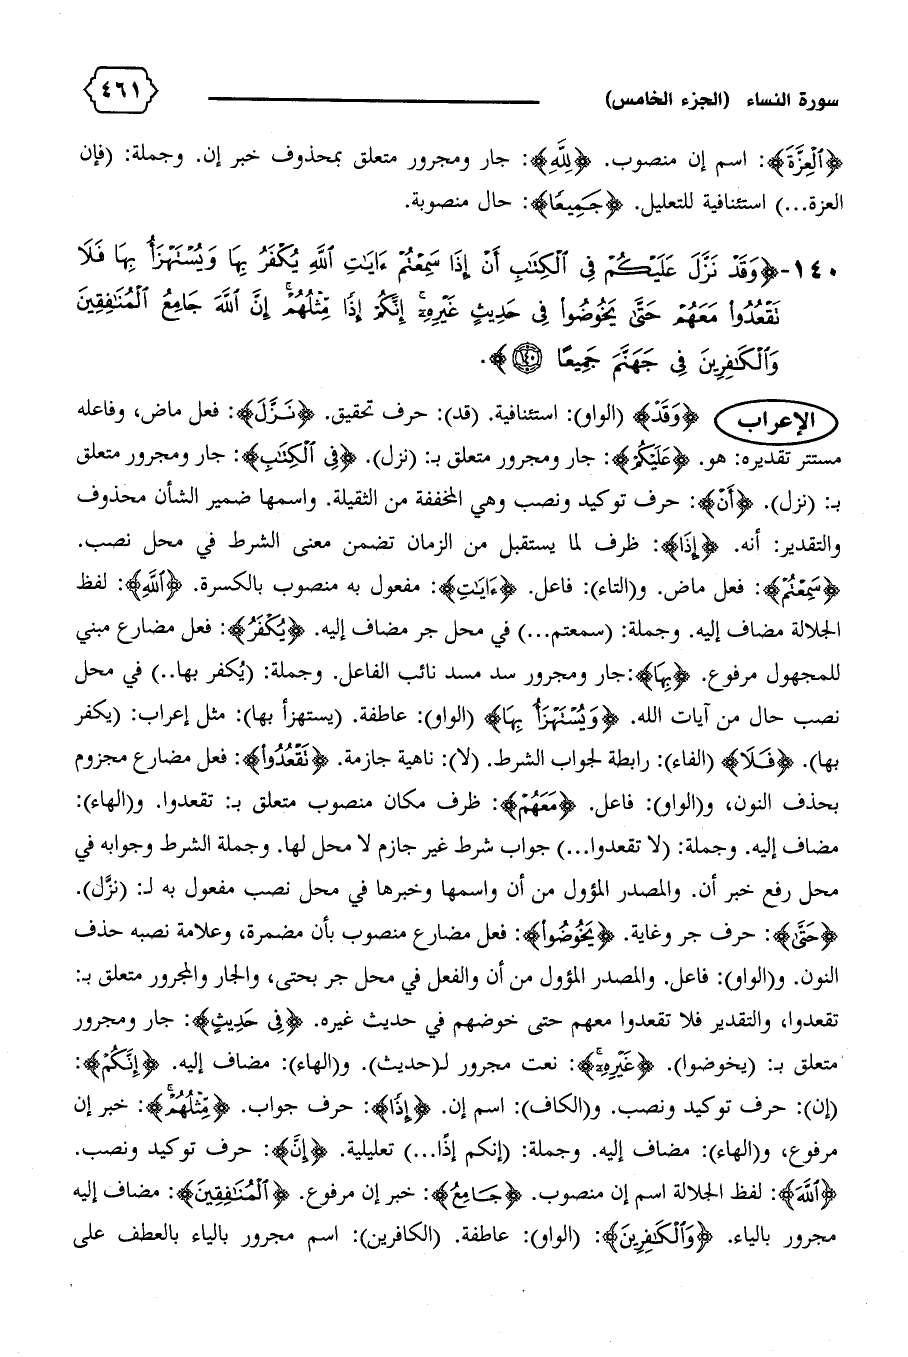 سورة النساء (الجزء الخامس) ٤٦١
﴿ٱلۡعِزَّةَ﴾: اسم إن منصوب. ﴿لِلَّهِ﴾: جار ومجرور متعلق بمحذوف خبر إن. وجملة: (فإن
العزة...) استئنافية للتعليل. ﴿جَمِيعٗا﴾: حال منصوبة.
١٤٠-﴿وَقَدۡ نَزَّلَ عَلَيۡكُمۡ فِي ٱلۡكِتَٰبِ أَنۡ إِذَا سَمِعۡتُمۡ ءَايَٰتِ ٱللَّهِ يُكۡفَرُ بِهَا وَيُسۡتَهۡزَأُ بِهَا فَلَا
تَقۡعُدُواْ مَعَهُمۡ حَتَّىٰ يَخُوضُواْ فِي حَدِيثٍ غَيۡرِهِۦٓۚ إِنَّكُمۡ إِذٗا مِّثۡلُهُمۡۗ إِنَّ ٱللَّهَ جَامِعُ ٱلۡمُنَٰفِقِينَ
وَٱلۡكَٰفِرِينَ فِي جَهَنَّمَ جَمِيعًا ١٤٠﴾.
الإعراب ﴿وَقَدۡ﴾ (الواو): استئنافية. (قد): حرف تحقيق. ﴿نَزَّلَ﴾: فعل ماض، وفاعله
مستتر تقديره: هو. ﴿عَلَيۡكُمۡ﴾: جار ومجرور متعلق بـ: (نزل). ﴿فِي ٱلۡكِتَٰبِ﴾: جار ومجرور متعلق
بـ: (نزل). ﴿أَنۡ﴾: حرف توكيد ونصب وهي المخففة من الثقيلة. واسمها ضمير الشأن محذوف
والتقدير: أنه. ﴿إِذَا﴾: ظرف لما يستقبل من الزمان تضمن معنى الشرط في محل نصب.
﴿سَمِعۡتُمۡ﴾: فعل ماض. و(التاء): فاعل. ﴿ءَايَٰتِ﴾: مفعول به منصوب بالكسرة. ﴿ٱللَّهِ﴾: لفظ
الجلالة مضاف إليه. وجملة: (سمعتم...) في محل جر مضاف إليه. ﴿يُكۡفَرُ﴾: فعل مضارع مبني
للمجهول مرفوع. ﴿بِهَا﴾:جار ومجرور سد مسد نائب الفاعل. وجملة: (يُكفر بها..) في محل
نصب حال من آيات الله. ﴿وَيُسۡتَهۡزَأُ بِهَا﴾ (الواو): عاطفة. (يستهزأ بها): مثل إعراب: (يكفر
بها). ﴿فَلَا﴾ (الفاء): رابطة لجواب الشرط. (لا): ناهية جازمة. ﴿تَقۡعُدُواْ﴾: فعل مضارع مجزوم
بحذف النون، و(الواو): فاعل. ﴿مَعَهُمۡ﴾: ظرف مكان منصوب متعلق بـ: تقعدوا. و(الهاء):
مضاف إليه. وجملة: (لا تقعدوا...) جواب شرط غير جازم لا محل لها. وجملة الشرط وجوابه في
محل رفع خبر أن. والمصدر المؤول من أن واسمها وخبرها في محل نصب مفعول به لـ: (نزَّل).
﴿حَتَّىٰ﴾: حرف جر وغاية. ﴿يَخُوضُواْ﴾: فعل مضارع منصوب بأن مضمرة، وعلامة نصبه حذف
النون. و(الواو): فاعل. والمصدر المؤول من أن والفعل في محل جر بحتى، والجار والمجرور متعلق بـ:
تقعدوا، والتقدير فلا تقعدوا معهم حتى خوضهم في حديث غيره. ﴿فِي حَدِيثٍ﴾: جار ومجرور
متعلق بـ: (يخوضوا). ﴿غَيۡرِهِۦٓۚ﴾: نعت مجرور لـ(حديث). و(الهاء): مضاف إليه. ﴿إِنَّكُمۡ﴾:
(إن): حرف توكيد ونصب. و(الكاف): اسم إن. ﴿إِذٗا﴾: حرف جواب. ﴿مِّثۡلُهُمۡۗ﴾: خبر إن
مرفوع، و(الهاء): مضاف إليه. وجملة: (إنكم إذًا...) تعليلية. ﴿إِنَّ﴾: حرف توكيد ونصب.
﴿ٱللَّهَ﴾: لفظ الجلالة اسم إن منصوب. ﴿جَامِعُ﴾: خبر إن مرفوع. ﴿ٱلۡمُنَٰفِقِينَ﴾: مضاف إليه
مجرور بالياء. ﴿وَٱلۡكَٰفِرِينَ﴾: (الواو): عاطفة. (الكافرين): اسم مجرور بالياء بالعطف على